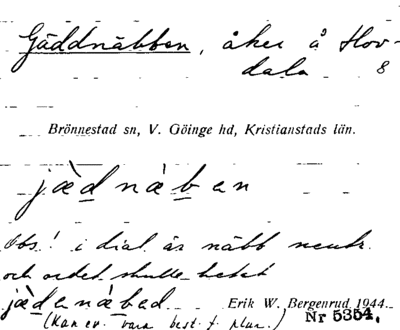 Gäddnäbben, åker å Hov-
dala 8
Brönnestad sn, V. Göinge hd, Kristianstads län.
jæ̀d̲næ̀b̲en
Obs! i dial är näbb neutr.
och ordet skulle hetat
jæ̀d̲enæ̀b̲ed. Erik W. Bergenrud 1944.
(Kan ev. vara best. f. plur.) Nr 5354.